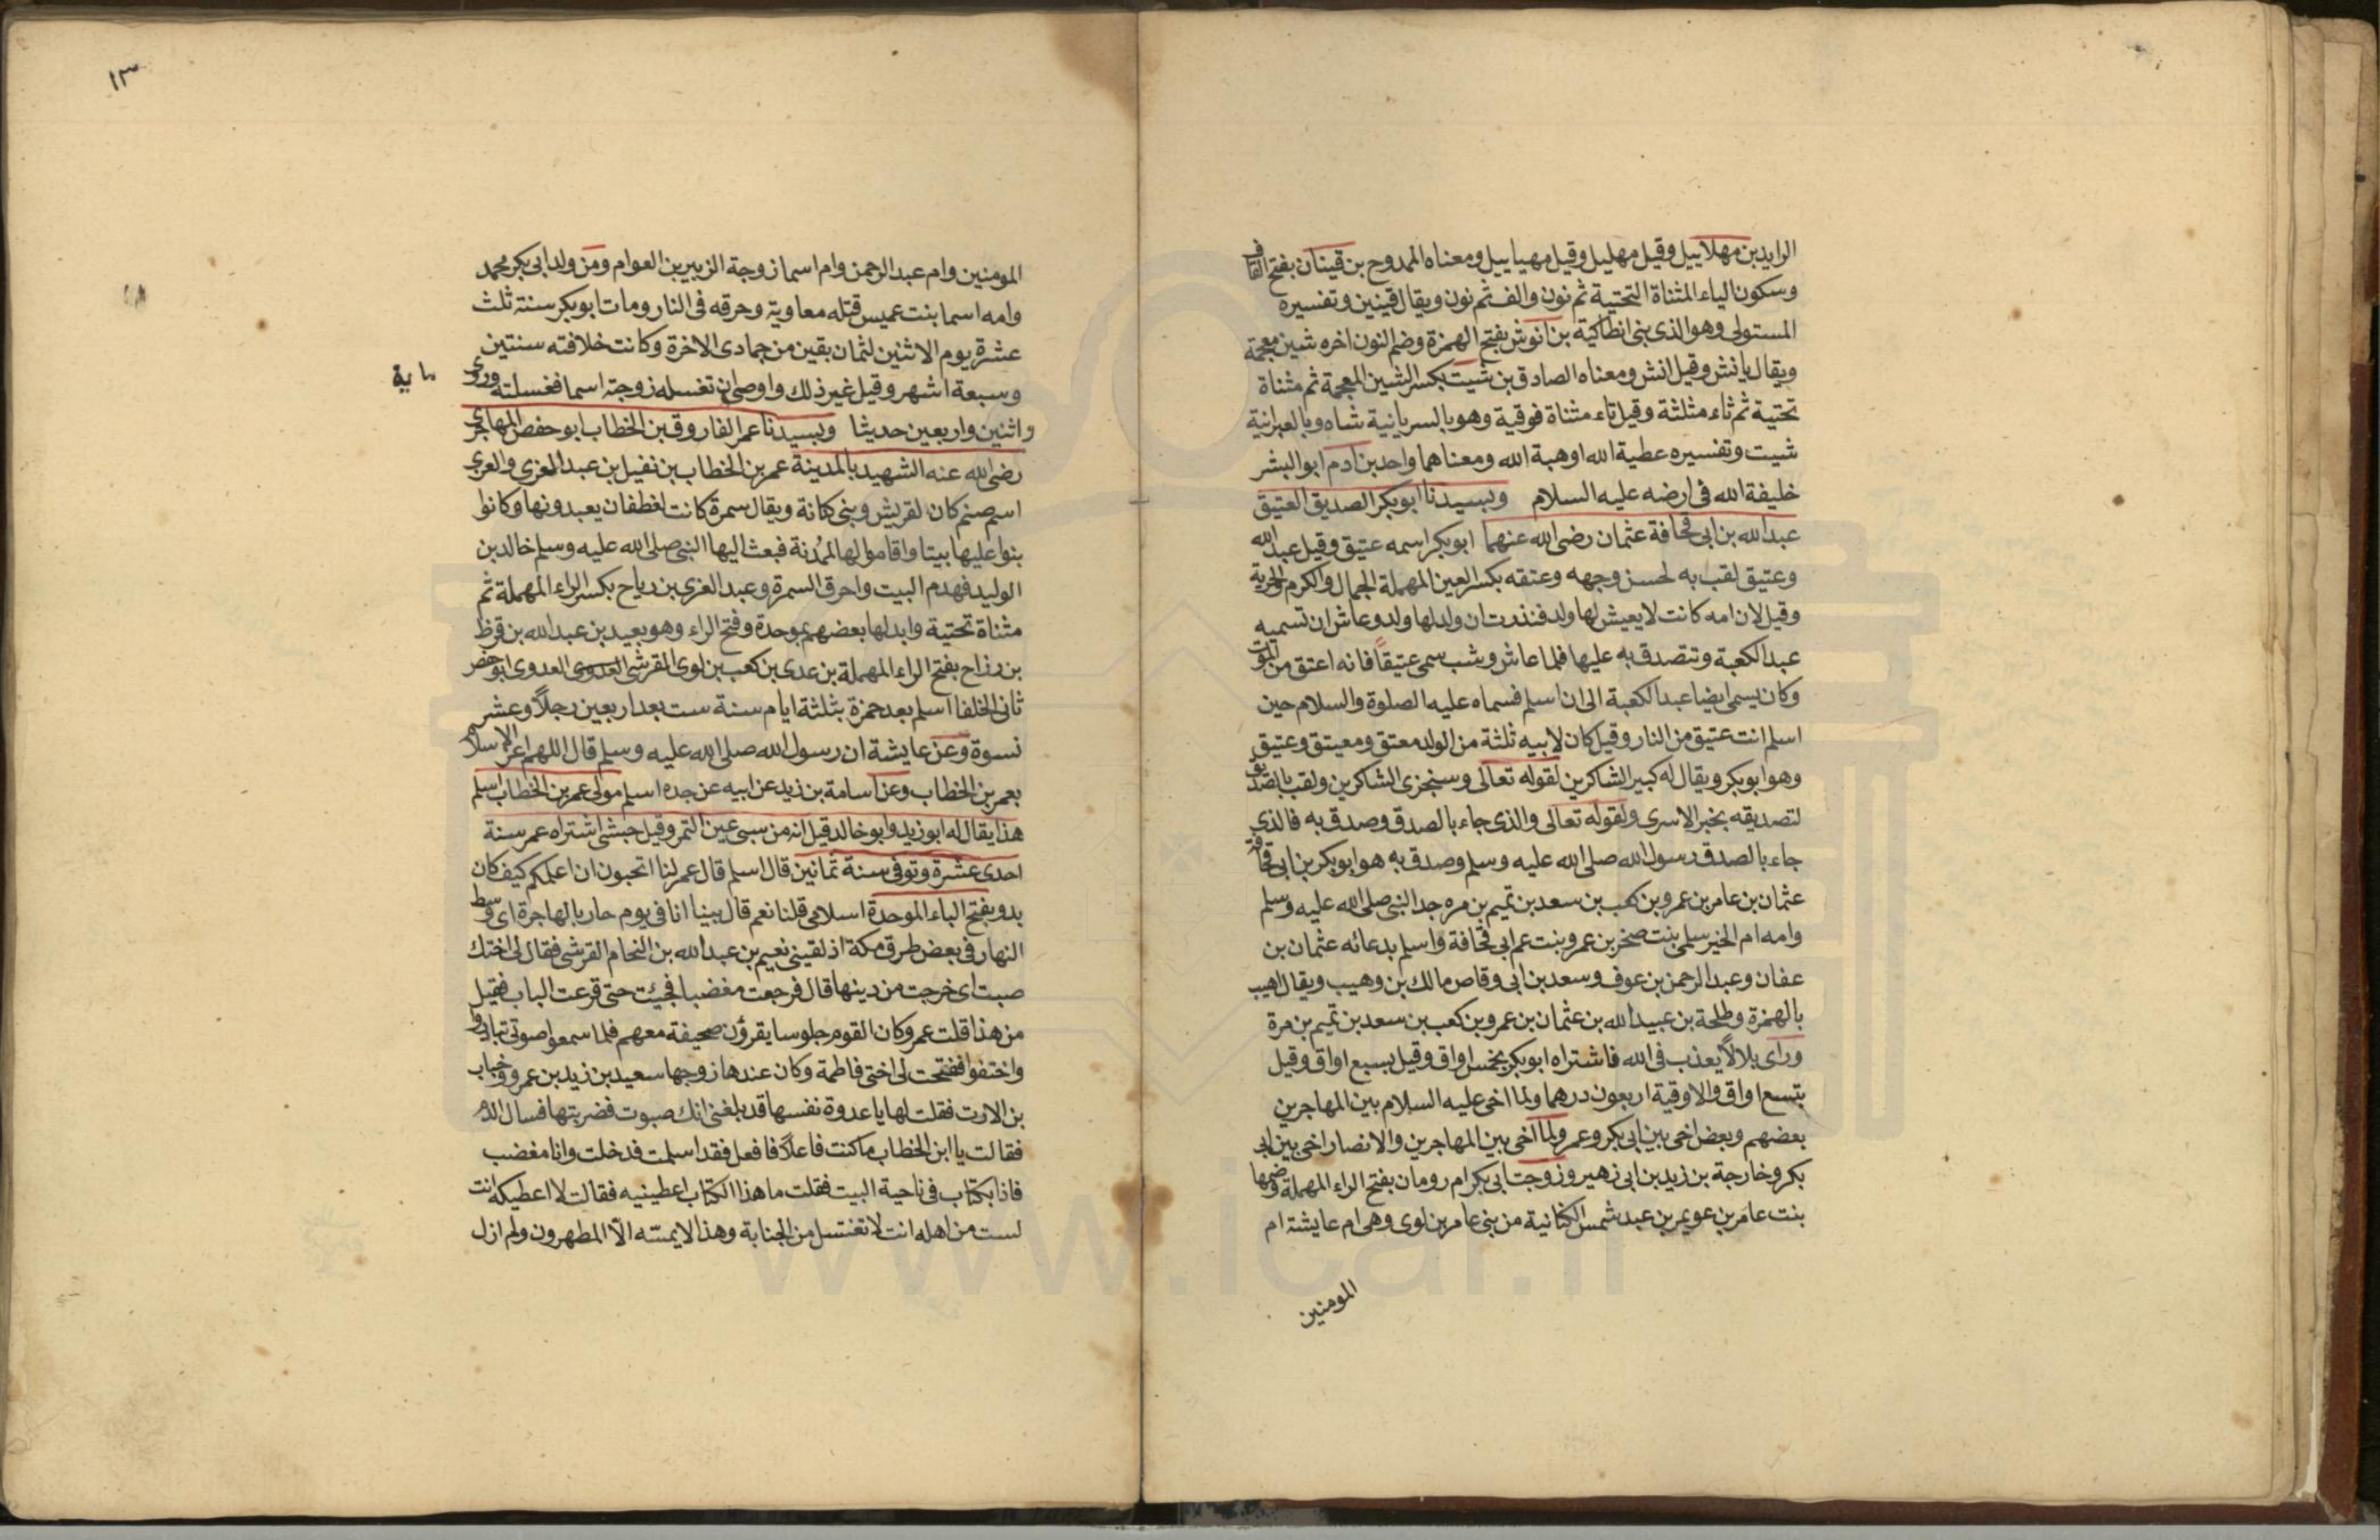 الرايد بن مهلاييل وقيل مهليل وقيل مهياييل ومعناه الممدوح بن قينان بفتح القاف
وسكون الياء المثناة التحتية ثم نون والف ثم نون ويقال قينين وتفسيره
المستولى وهو الذى بنى انطاكية بن انوش بفتح الهمزة وضم النون اخره شين معجمة
ويقال يانش وقيل انش ومعناه الصادق بن شيت بكسر الشين المعجمة ثم مثناة
تحتية ثم ثاء مثلثة وقيل تاء مثناة فوقية وهو بالسريانية شاه وبالعبرانية
شيت وتفسيره عطية الله اوهبة الله ومعناهما واحد بن ادم ابو البشر
خليفة الله فى ارضه عليه السلام وبسيدنا ابو بكر الصديق العتيق
عبد الله بن ابى قحافة عثمان رضى الله عنهما ابو بكر اسمه عتيق وقيل عبد الله
وعتيق لقب به لحسن وجهه وعتقه بكسر العين المهملة الجمال والكرم والحرية
وقيل لان امه كانت لا يعيش لها ولد فنذرت ان ولد لها ولد وعاش ان تسميه
عبد الكعبة وتتصدق به عليها فلما عاش وشب سمى عتيقاً فانه اعتق من الموت
وكان يسمى ايضا عبد الكعبة الى ان اسلم فسماه عليه الصلوة والسلام حين
اسلم انت عتيق من النار وقيل كان لابيه ثلثة من الولد معتق ومعيتق وعتيق
وهو ابو بكر ويقال له كبير الشاكرين لقوله تعالى وسنجزى الشاكرين ولقب بالصديق
لتصديقه بخبر الاسرى ولقوله تعالى والذى جاء بالصدق وصدق به فالذى
جاء بالصدق رسول الله صلى الله عليه وسلم وصدق به هو ابو بكر بن ابى قحافة
عثمان بن عامر بن عمرو بن كعب بن سعد بن تميم بن مره جد النبى صلى الله عليه وسلم
وامه ام الخير سلمى بنت صخر بن عمرو بنت عم ابى قحافة واسلم بدعائه عثمان بن
عفان وعبد الرحمن بن عوف وسعد بن ابى وقاص مالك بن وهيب ويقال اهيب
بالهمزة وطلحة بن عبيد الله بن عثمان بن عمرو بن كعب بن سعد بن تميم بن مرة
وراى بلالاً يعذب فى الله فاشتراه ابو بكر بخمس اواق وقيل بسبع اواق وقيل
بتسع اواق والاوقية اربعون درهما ولما اخى عليه السلام بين المهاجرين
بعضهم وبعض اخى بين ابى بكر وعمر ولما اخى بين المهاجرين والانصار اخى بين ابى
بكر وخارجة بن زيد بن ابى زهير وزوجت ابى بكر ام رومان بفتح الراء المهملة وضمها
بنت عامر بن عويمر بن عبد شمس الكنانية من بنى عامر بن لوى وهى ام عايشة ام
المومنين
١٣
المومنين وام عبد الرحمن وام اسما زوجة الزبير بن العوام ومن ولد ابى بكر محمد
وامه اسما بنت عميس قتله معاوية وحرقه فى النار ومات ابو بكر سنة ثلث
عشرة يوم الاثنين لثمان بقين من جمادى الاخرة وكانت خلافته سنتين
وسبعة اشهر وقيل غير ذلك واوصى ان تغسله زوجته اسما فغسلته وروى
ماية
واثنين واربعين حديثا وبسيدنا عمر الفاروق بن الخطاب ابو حفص المهاجرى
رضى الله عنه الشهيد بالمدينة عمر بن الخطاب بن نفيل بن عبد العزى والعزى
اسم صنم كان لقريش وبنى كنانة ويقال سمرة كانت لغطفان يعبدونها وكانوا
بنوا عليها بيتا واقاموا لها المدنة فبعث اليها النبى صلى الله عليه وسلم خالد بن
الوليد فهدم البيت واحرق السمرة وعبد العزى بن رياح بكسر الراء المهملة ثم
مثناة تحتية وابدلها بعضهم بموحدة وفتح الراء وهو بعيد بن عبد الله بن قرظ
بن رزاح بفتح الراء المهملة بن عدى بن كعب بن لوى القرشى العدوى العدوى ابو حفص
ثانى الخلفا اسلم بعد حمزة بثلثة ايام سنة ست بعد اربعين رجلاً وعشر
نسوة وعن عايشة ان رسول الله صلى الله عليه وسلم قال اللهم اعز الاسلام
بعمر بن الخطاب وعن اسامة بن زيد عن ابيه عن جده اسلم مولى عمر بن الخطاب اسلم
هذا يقال له ابو زيد وابو خالد قيل انه من سبى عين التمر وقيل حبشى اشتراه عمر سنة
احدى عشرة وتوفى سنة ثمانين قال اسلم قال عمر لنا اتحبون ان اعلمكم كيف كان
بدو بفتح الباء الموحدة اسلامى قلنا نعم قال بينا انا فى يوم حار بالهاجرة اى وسط
النهار فى بعض طرق مكة اذ لقينى نعيم بن عبد الله بن النحام القرشى فقال لى اختك
صبت اى خرجت من دينها قال فرجعت مغضبا فجيئت حتى قرعت الباب فقيل
من هذا قلت عمر وكان القوم جلوسا يقرؤن صحيفة معهم فلما سمعوا صوتى تبادروا
واختفوا ففتحت لى اختى فاطمة وكان عندها زوجها سعيد بن زيد بن عمرو وخباب
بن الارت فقلت لها يا عدوة نفسها قد بلغنى انك صبوت فضربتها فسال الدم
فقالت يا ابن الخطاب ما كنت فاعلاً فافعل فقد اسلمت فدخلت وانا مغضب
فاذا بكتاب فى ناحية البيت فقلت ما هذا الكتاب اعطينيه فقالت لا اعطيكه انت
لست من اهله انت لا تغتسل من الجنابة وهذا لا يمسه الّا المطهرون ولم ازل
www.icar.ir